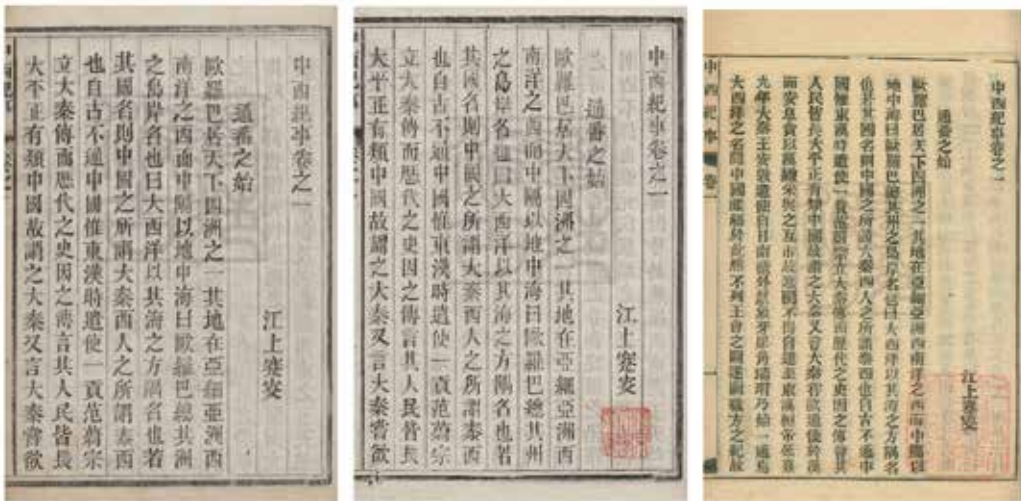 中西紀事卷之一
江上蹇叟
通番之始
歐羅巴居天下四洲之一其地在亞細亞洲西
南洋之西而中隔以地中海曰歐羅巴總其洲
之島岸名也曰大西洋以其海之方隅名也若
其國名則中國之所謂大秦西人之所謂泰西
也自古不通中國惟東漢時遣使一貢范蔚宗
立大秦傳而歷代之史因之傳言其人民皆長
大平正有類中國故謂之大秦又言大秦嘗欲
中西紀事卷之一
江上蹇叟
通番之始
歐羅巴居天下四洲之一其地在亞細亞洲西
南洋之西而中隔以地中海曰歐羅巴總其州
之島岸名也曰大西洋以其海之方隅名也若
其國名則中國之所謂大秦西人之所謂泰西
也自古不通中國惟東漢時遣使一貢范蔚宗
立大秦傳而歷代之史因之傳言其人民皆長
大平正有類中國故謂之大秦又言大秦嘗欲
中西紀事卷之一
江上蹇叟
通番之始
歐羅巴居天下四洲之一其地在亞細亞洲西南洋之西而中隔以
地中海曰歐羅巴總其洲之島岸名也曰大西洋以其海之方隅名
也若其國名則中國之所謂大秦西人之所謂泰西也自古不通中
國惟東漢時遣使一貢范蔚宗立大秦傳而歷代之史因之傳言其
人民皆長大平正有類中國故謂之大秦又言大秦嘗欲通使於漢
而安息貢以漢繒綵與之互市故遮閡不得自達至東漢桓帝延熹
九年大秦王安敦遣使自日南徼外獻象牙犀角瑇瑁乃始一通焉
大西洋之名聞中國 不列王會之圖 職方之紀故
中西紀事 卷一